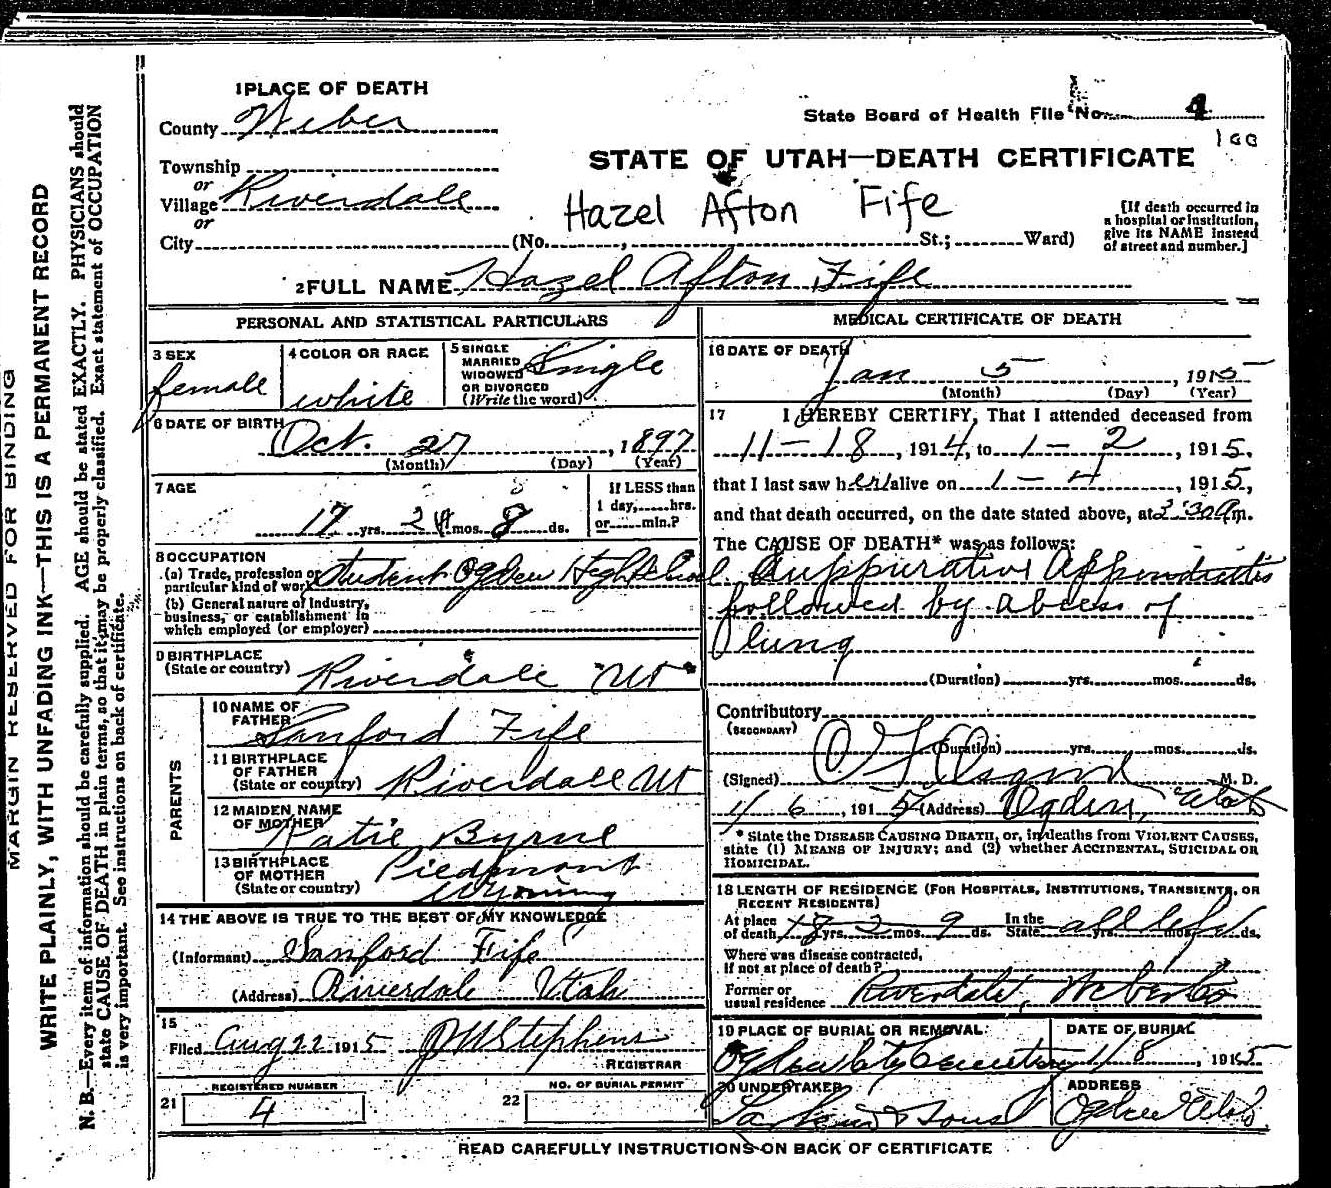 MARGIN RESERVED FOR BINDING
WRITE PLAINLY, WITH UNFADING INK—THIS IS A PERMANENT RECORD
N. B.—Every item of information should be carefully supplied. AGE should be stated EXACTLY. PHYSICIANS should
state CAUSE OF DEATH in plain terms, so that it may be properly classified. Exact statement of OCCUPATION
is very important. See instructions on back of certificate.
1 PLACE OF DEATH
County Weber
Township
or
Village Riverdale
or
City (No. , St.; Ward)
State Board of Health File No. 4
STATE OF UTAH—DEATH CERTIFICATE
Hazel Afton Fife
[If death occurred in
a hospital or institution,
give its NAME instead
of street and number.]
2 FULL NAME Hazel Afton Fife
PERSONAL AND STATISTICAL PARTICULARS
3 SEX
female
4 COLOR OR RACE
white
5 SINGLE
MARRIED
WIDOWED
OR DIVORCED
(Write the word)
Single
6 DATE OF BIRTH
Oct. 27, 1897
(Month) (Day) (Year)
7 AGE
17 yrs. 2 mos. 8 ds.
If LESS than
1 day, hrs.
or min.?
8 OCCUPATION
(a) Trade, profession or
particular kind of work
Student Ogden High School.
(b) General nature of industry,
business, or establishment in
which employed (or employer)
9 BIRTHPLACE
(State or country) Riverdale Ut
PARENTS
10 NAME OF
FATHER
Sanford Fife
11 BIRTHPLACE
OF FATHER
(State or country) Riverdale Ut
12 MAIDEN NAME
OF MOTHER
Katie Byrne
13 BIRTHPLACE
OF MOTHER
(State or country)
Piedmont
Wyoming
14 THE ABOVE IS TRUE TO THE BEST OF MY KNOWLEDGE
(Informant) Sanford Fife
(Address) Riverdale Utah
15
Filed Aug 22 1915 J M Stephens
REGISTRAR
REGISTERED NUMBER
21 4
NO. OF BURIAL PERMIT
22
MEDICAL CERTIFICATE OF DEATH
16 DATE OF DEATH
Jan 5, 1915
(Month) (Day) (Year)
17 I HEREBY CERTIFY, That I attended deceased from
11 - 18, 1914, to 1 - 2, 1915,
that I last saw her alive on 1 - 4, 1915,
and that death occurred, on the date stated above, at 2:30 a m.
The CAUSE OF DEATH* was as follows:
Suppurative Appendicitis
followed by abcess of
lung
(Duration) yrs. mos. ds.
Contributory
(SECONDARY)
(Duration) yrs. mos. ds.
(Signed) M. D.
1/6, 1915 (Address) Ogden, Utah
* State the DISEASE CAUSING DEATH, or, in deaths from VIOLENT CAUSES,
state (1) MEANS OF INJURY; and (2) whether ACCIDENTAL, SUICIDAL OR
HOMICIDAL.
18 LENGTH OF RESIDENCE (FOR HOSPITALS, INSTITUTIONS, TRANSIENTS, OR
RECENT RESIDENTS)
At place
of death yrs. 2 mos. 9 ds.
In the
State all life yrs. mos. ds.
Where was disease contracted,
if not at place of death?
Former or
usual residence Riverdale, Weber Co
19 PLACE OF BURIAL OR REMOVAL
Ogden City Cemetery
DATE OF BURIAL
1/8, 1915
20 UNDERTAKER
Larkin & Sons
ADDRESS
Ogden Utah
READ CAREFULLY INSTRUCTIONS ON BACK OF CERTIFICATE